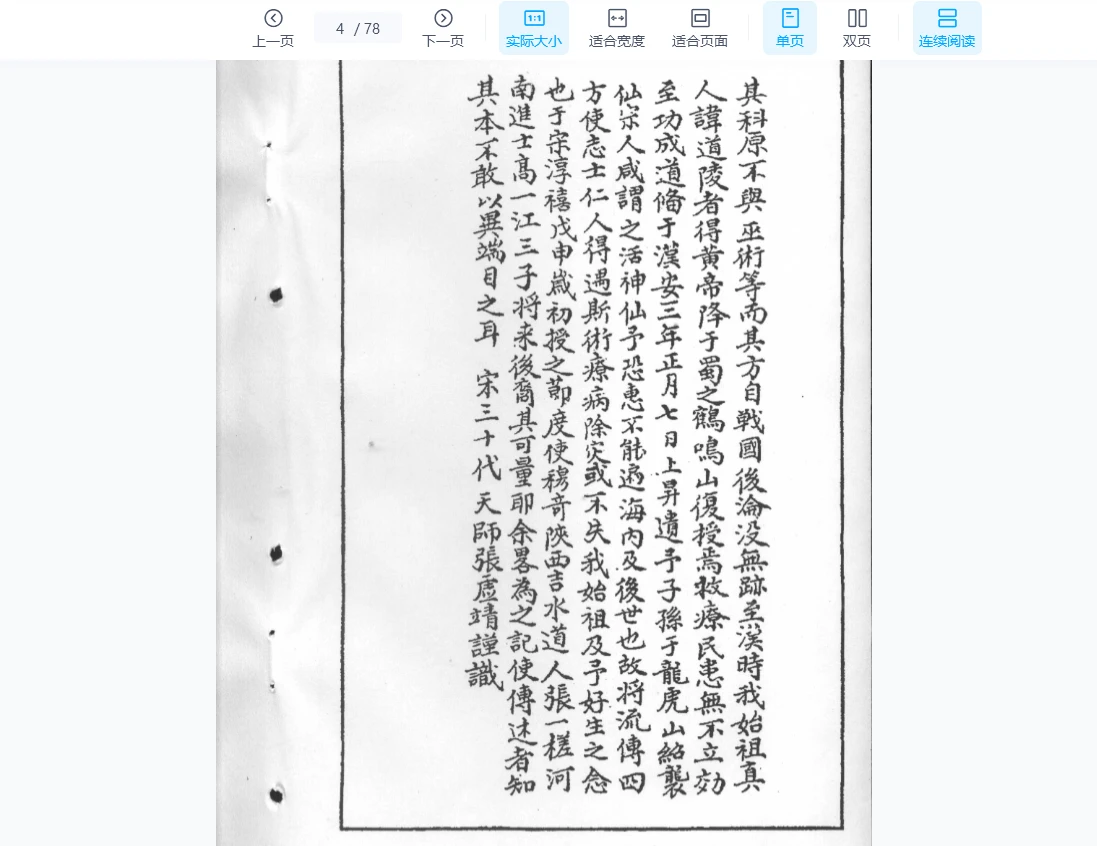 上一页
4 / 78
下一页
1:1
实际大小
适合宽度
适合页面
单页
双页
连续阅读
其科原不與巫術等而其方自戰國後淪没無跡至漢時我始祖真
人諱道陵者得黄帝降于蜀之鶴鳴山復授焉救療民患無不立効
至功成道俻于漢安三年正月七日上昇遺予子孫于龍虎山紹襲
仙宗人咸謂之活神仙予恐惠不能遍海内及後世也故将流傳四
方使志士仁人得遇斯術療病除灾或不失我始祖及予好生之念
也于宋淳禧戊申歲初授之節度使穆竒陝西吉水道人張一槎河
南進士高一江三子将来後裔其可量耶余畧為之記使傳述者知
其本不敢以異端目之耳 宋三十代天師張虚靖謹識